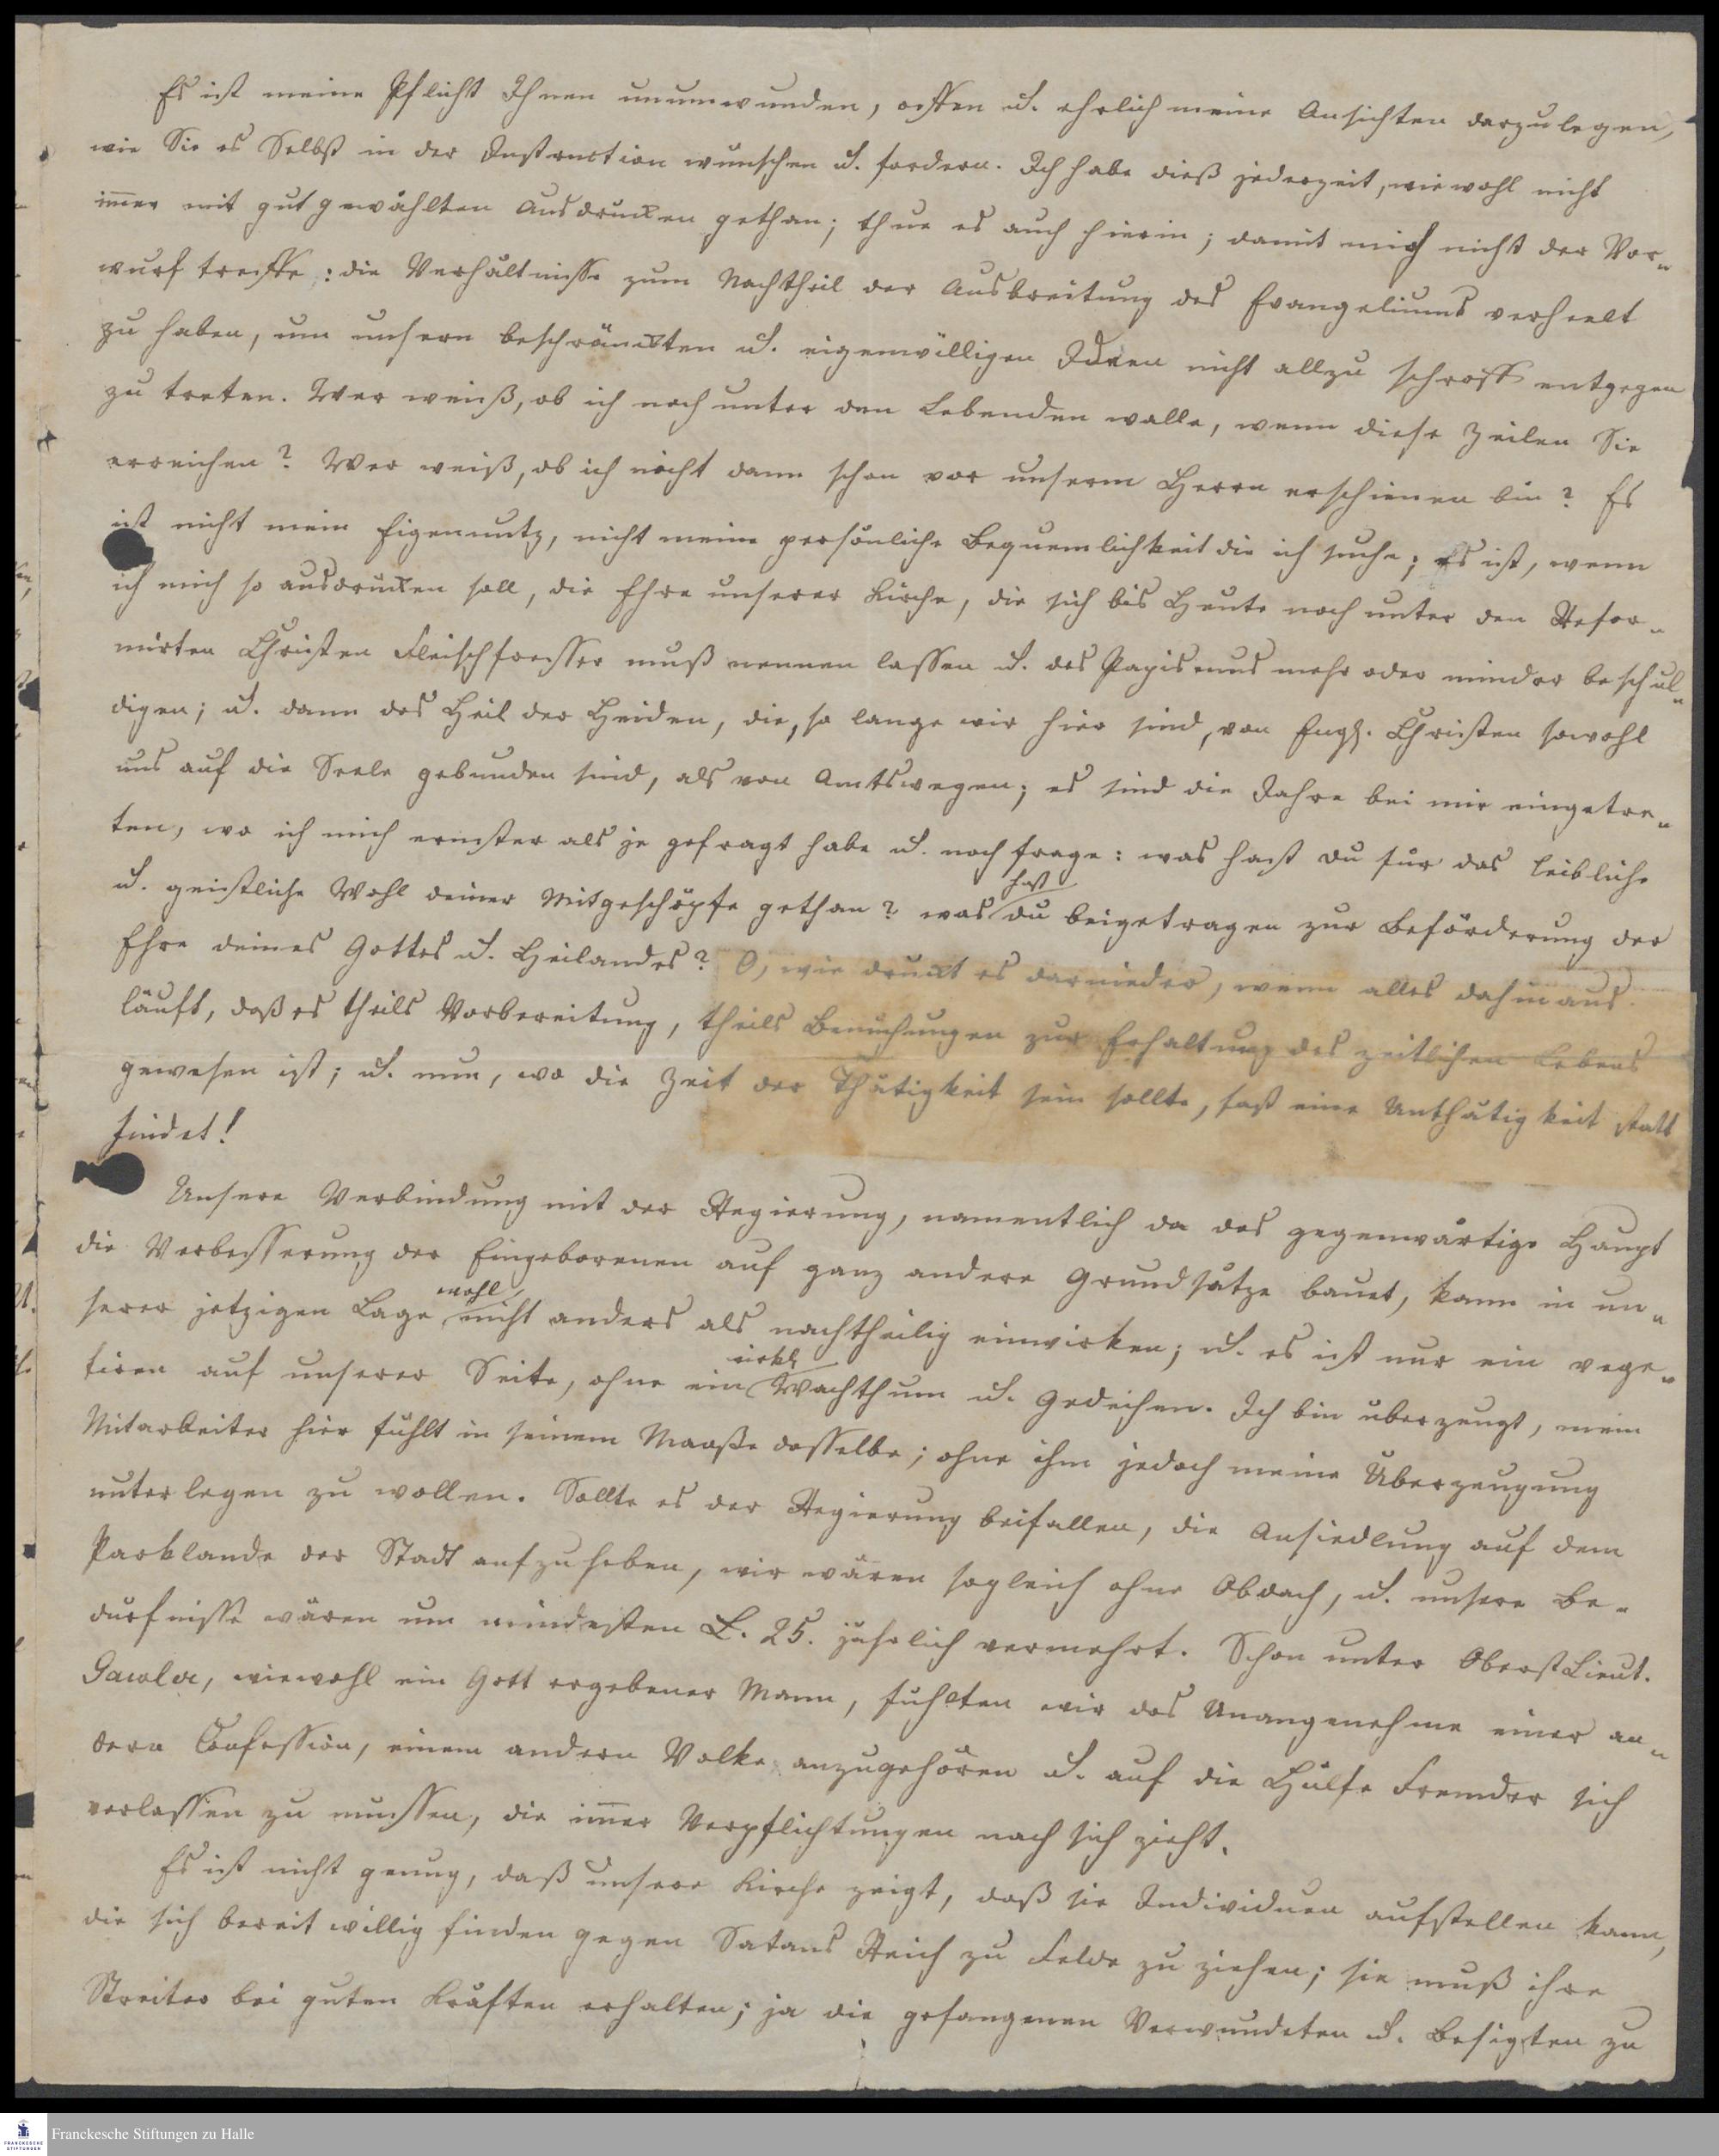 Es ist meine Pflicht Ihnen unumwunden, offen u. ehrlich meine Ansichten darzulegen,
wie Sie es Selbst in der Instruction wünschen u. fordern. Ich habe dieß jederzeit, wiewohl nicht
im̅er mit gut gewählten Ausdrücken gethan; thue es auch hierin; damit mich nicht der Vor-
wurf treffe: die Verhältnisse zum Nachtheil der Ausbreitung des Evangeliums verheelt
zu haben, um unsern beschränckten u. eigenwilligen Ideen nicht allzu schroff entgegen
zu treten. Wer weiß, ob ich noch unter den Lebenden walle, wenn diese Zeilen Sie
erreichen? Wer weiß, ob ich nicht dann schon vor unserm Herrn erschienen bin? Es
ist nicht mein Eigennutz, nicht meine persönliche Bequemlichkeit die ich suche; es ist, wenn
ich mich so ausdrücken soll, die Ehre unserer Kirche, die sich bis Heute noch unter den Refor-
mirten Christen Fleischfresser muß nennen lassen u. des Papismus mehr oder minder beschul-
digen; u. dann das Heil der Heiden, die, so lange wir hier sind, von Engl. Christen sowohl
uns auf die Seele gebunden sind, als von Amtswegen; es sind die Jahre bei mir eingetre-
ten, wo ich mich ernster als je gefragt habe u. noch frage: was hast du für das leibliche
u. geistliche Wohl deiner Mitgeschöpfe gethan? was hast du beigetragen zur Beförderung der
Ehre deines Gottes u. Heilandes? O, wie drückt es darnieder, wenn alles dahinaus
läuft, daß es theils Vorbereitung, theils Bemühungen zur Erhaltung des zeitlichen Lebens
gewesen ist; u. nun, wo die Zeit der Thätigkeit sein sollte, fast eine Unthätigkeit statt
findet!
Unsere Verbindung mit der Regierung, namentlich da das gegenwärtige Haupt
die Verbesserung der Eingeborenen auf ganz andere Grundsätze bauet, kann in un-
serer jetzigen Lage wohl nicht anders als nachtheilig einwirken; u. es ist nur ein vege-
tiren auf unserer Seite, ohne ein wirkl. Wachsthum u. Gedeihen. Ich bin überzeugt, mein
Mitarbeiter hier fühlt in seinem Maaße dasselbe; ohne ihm jedoch meine Überzeugung
unterlegen zu wollen. Sollte es der Regierung beifallen, die Ansiedlung auf dem
Parklande der Stadt aufzuheben, wir wären sogleich ohne Obdach, u. unsere Be-
dürfnisse wären um mindesten L. 25. jährlich vermehrt. Schon unter Oberst Lieut.
Gawler, wiewohl ein Gott ergebener Mann, fühlten wir das Unangenehme einer an-
dern Confession, einem andern Volke anzugehören u. auf die Hülfe Fremder sich
verlassen zu müssen, die im̅er Verpflichtungen nach sich zieht.
Es ist nicht genug, daß unsere Kirche zeigt, daß sie Individuen aufstellen kann,
die sich bereit willig finden gegen Satans Reich zu Felde zu ziehen; sie muß ihre
Streiter bei guten Kräften erhalten; ja die gefangenen Verwundeten u. Besigten zu
Franckesche Stiftungen zu Halle